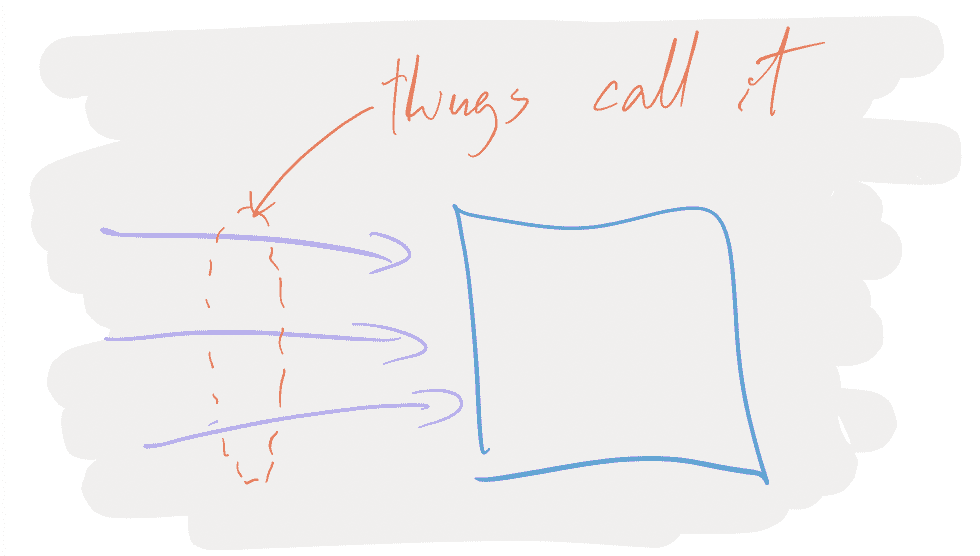 things call it